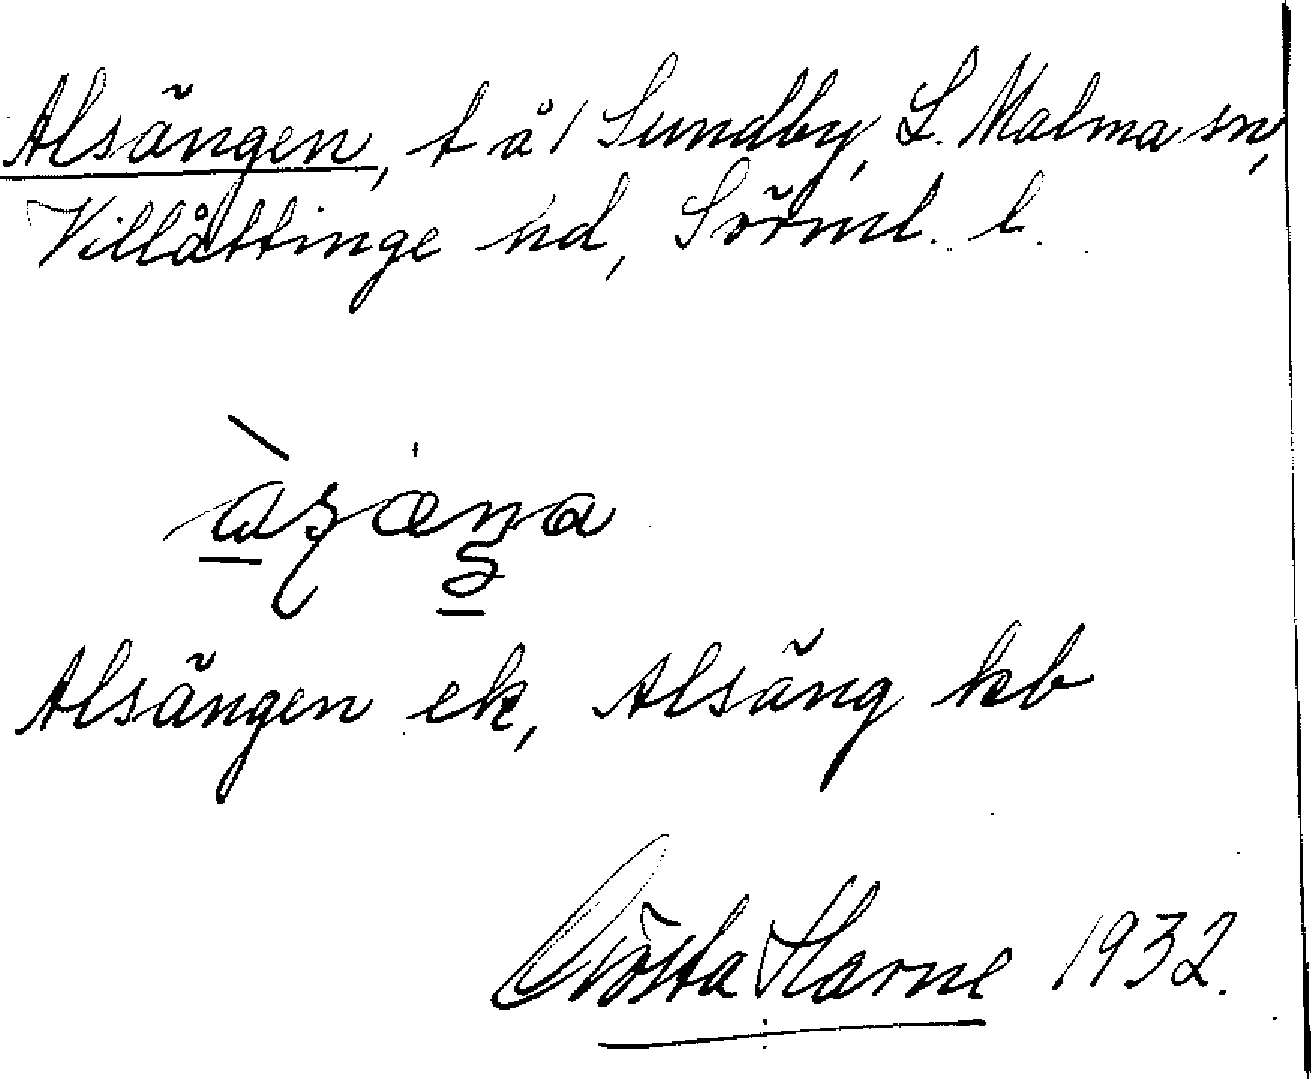 Alsängen, t å/ Sundby, L. Malma sn,
Villåttinge hd, Sörml. l.
Alsängen ek, Alsäng kb
Gösta Harne 1932.